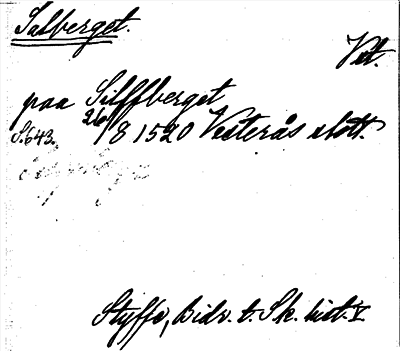 Salberget.
Vet.
paa Silffberget
S. 643. 26/8 1520 Vesterås slott.
Styffe, Bidr. t. Sk. hist. V